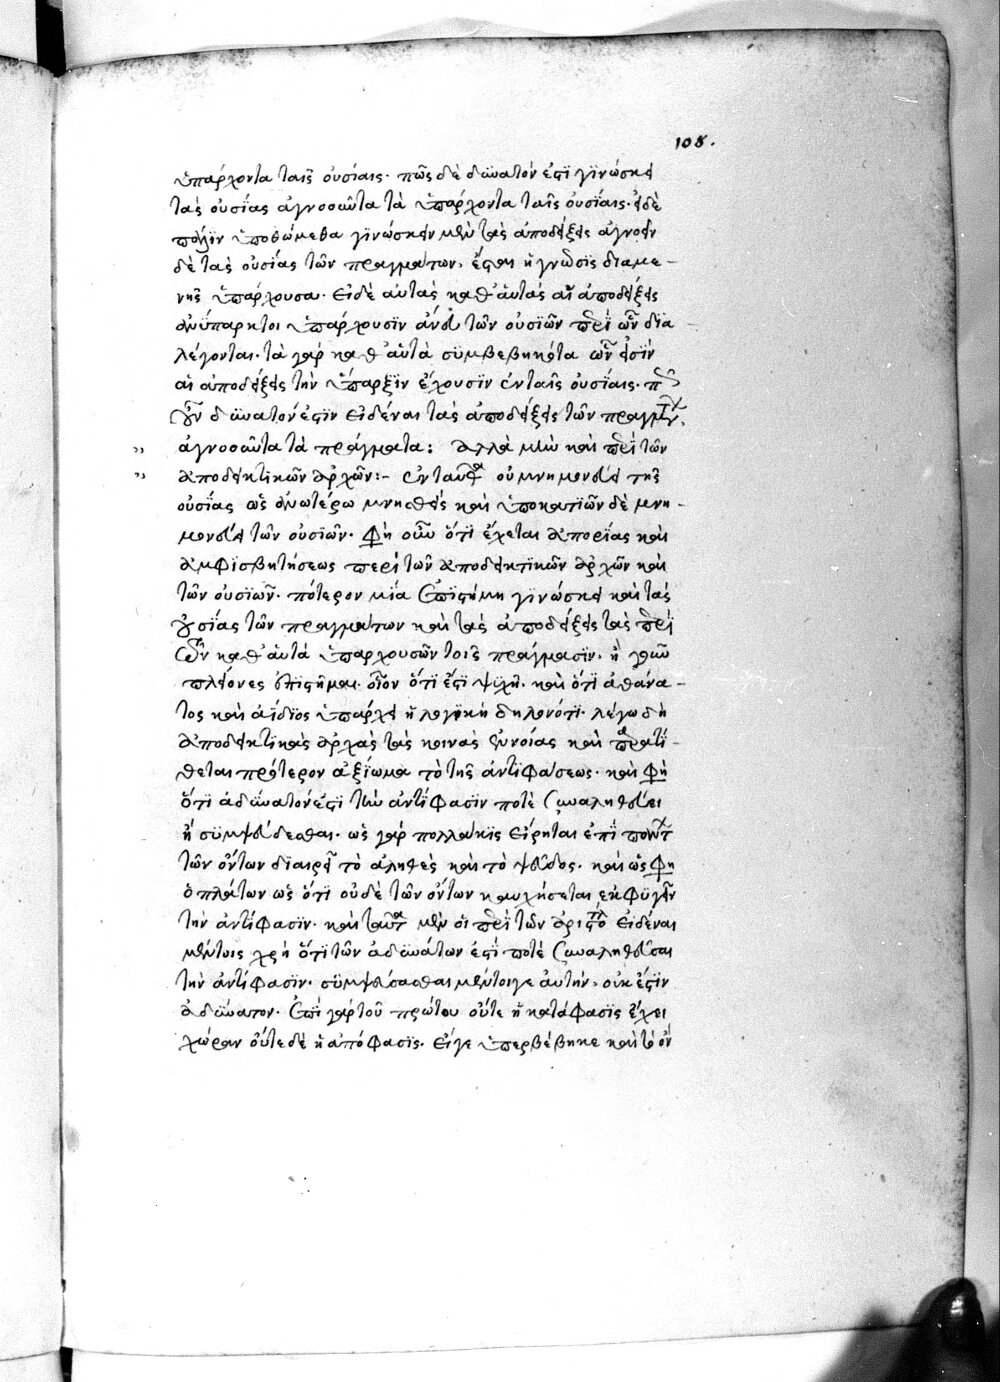 108.
ὑπάρχοντα ταῖς οὐσίαις· πῶς δὲ δυνατόν ἐστι γϊνώσκειν
τὰς οὐσΐας ἀγνοοῦντα τὰ ὑπάρχοντα ταῖς οὐσΐαις· εἰ δὲ
πάλϊν ὑποθώμεθα γϊνώσκειν μὲν τὰς ἀποδείξεις ἀγνοεῖν
δὲ τὰς οὐσίας τῶν πραγμάτων, ἔσται ἡ γνῶσϊς διαμε-
νῆς ὑπάρχουσα· εἰ δὲ αὐτὰς καθ' αὑτάς αἱ ἀποδείξεις
ἀνΰπαρκτοι ὑπάρχουσϊν ἄνευ τῶν οὐσϊῶν περὶ ὧν δϊα
λέγονται· τὰ γὰρ καθ' αὑτὰ συμβεβηκότα ὧν εἰσϊν
αἱ ἀποδείξεις τὴν ὕπαρξϊν ἔχουσϊν ἐν ταῖς οὐσΐαις· πῶς
οὖν δυνατόν ἐστϊν εἰδέναι τὰς ἀποδείξεις τῶν πραγμάτων,
ἀγνοοῦντα τὰ πράγματα: ἀλλὰ μὴν καὶ περὶ τῶν
ἀποδεικτικῶν ἀρχῶν:- ἐνταῦθα οὐ μνημονεύει τῆς
οὐσΐας ὡς ἀνωτέρω μνησθεὶς καὶ ὑποκατιὼν δὲ μνη-
μονεύει τῶν οὐσϊῶν· φησὶ οὖν ὅτϊ ἔχεται ἀπορΐας καὶ
ἀμφϊσβητήσεως περὶ τῶν ἀποδεικτϊκῶν ἀρχῶν καὶ
τῶν οὐσϊῶν· πότερον μΐα ἐπϊστήμη γϊνώσκει καὶ τὰς
οὐσΐας τῶν πραγμάτων καὶ τὰς ἀποδείξεις τὰς περὶ
τῶν καθ' αὑτὰ ὑπαρχουσῶν τοῖς πράγμασϊν· ἢ γοῦν
πλείονες ἐπϊστῆμαι· οἷον ὅτϊ ἐστϊ ψϋχὴ· καὶ ὅτϊ ἀθάνα-
τος καὶ ἀΐδϊος ὑπάρχει ἡ λογϊκὴ δηλονότϊ· λέγω δὴ
ἀποδεικτϊκὰς ἀρχὰς τὰς κοινὰς ἐννοίας καὶ παρατί-
θεται πρότερον ἀξΐωμα τὸ τῆς ἀντϊφάσεως· καὶ φησὶ
ὅτϊ ἀδύνατόν ἐστϊ τὴν ἀντΐφασϊν ποτὲ συναληθεύει
ἢ συμψεύδεσθαι· ὡς γὰρ πολλάκϊς εἴρηται ἐπὶ πάντων
τῶν ὄντων δϊαιρεῖ τὸ ἀληθὲς καὶ τὸ ψεῦδος· καὶ ὥς φησι
ὁ πλάτων ὡς ὅτϊ οὐδὲ τῶν ὄντων καυχήσεται ἐκφυγεῖν
τὴν ἀντΐφασϊν· καὶ ταῦτα μὲν οἱ περὶ τὸν ἀριστοτέλη εἰδέναι
μέντοι χρὴ ὅτϊ τῶν ἀδυνάτων ἐστὶ ποτὲ συναληθεῦσαι
τὴν ἀντΐφασϊν· συμψεύσασθαι μέντοιγε αὐτὴν, οὐκ ἔστϊν
ἀδύνατον· ἐπὶ γὰρ τοῦ πρώτου οὔτε ἡ κατάφασϊς ἔχει
χώραν οὔτε δὲ ἡ ἀπόφασϊς· εἴγε ὑπερβέβηκε καὶ τὸ ὂν